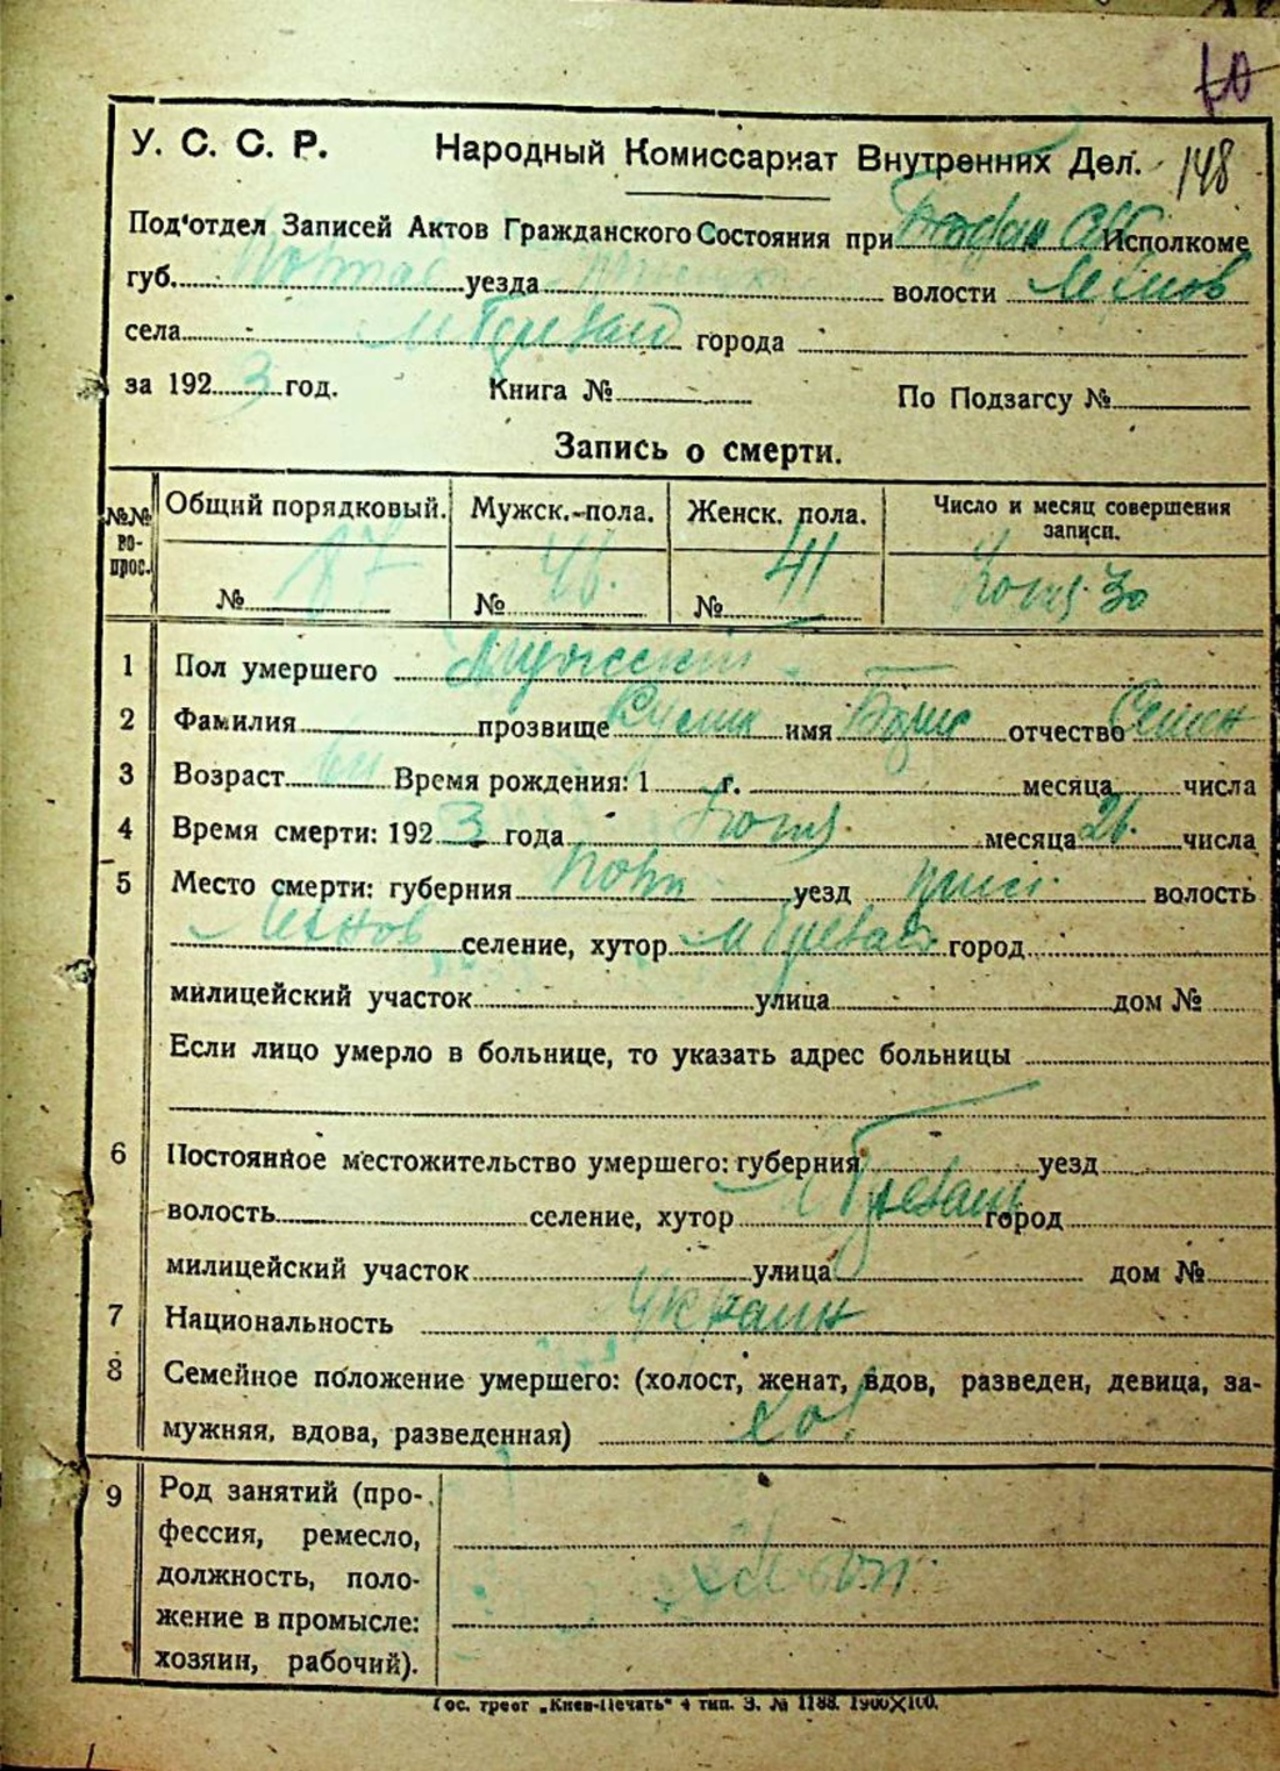 10
У. С. С. Р. Народный Комиссариат Внутренних Дел. 148
Под'отдел Записей Актов Гражданского Состояния при Исполкоме
губ. уезда волости
села города
за 1923 год. Книга № По Подзагсу №
Запись о смерти.
№№ вопрос. Общий порядковый. Мужск.-пола. Женск. пола. Число и месяц совершения записи.
№ 87 № 46. № 41 30
1 Пол умершего Мужеский
2 Фамилия прозвище имя Борис отчество Семен
3 Возраст Время рождения: 1 г. месяца числа
4 Время смерти: 1923 года месяца 26. числа
5 Место смерти: губерния уезд волость
селение, хутор город
милицейский участок улица дом №
Если лицо умерло в больнице, то указать адрес больницы
6 Постоянное местожительство умершего: губерния уезд
волость селение, хутор город
милицейский участок улица дом №
7 Национальность Украин
8 Семейное положение умершего: (холост, женат, вдов, разведен, девица, за-
мужняя, вдова, разведенная) Хол
9 Род занятий (про-
фессия, ремесло,
должность, поло-
жение в промысле:
хозяин, рабочий).
Гос. трест „Киев-Печать" 4 тип. З. № 1188. 1900Х100.